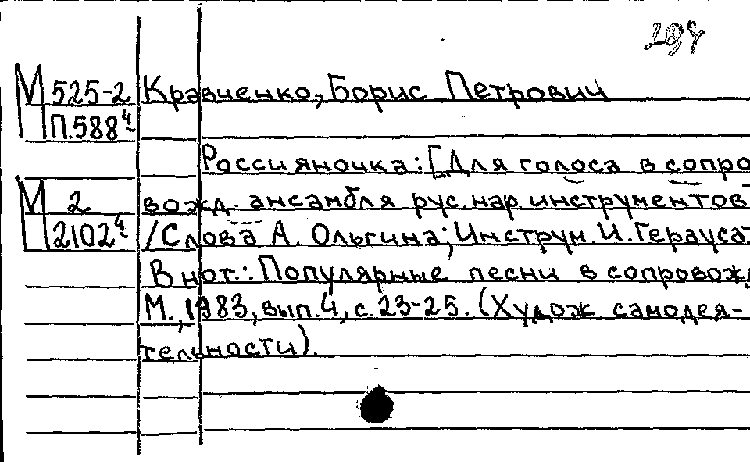 М 525-2 Кравченко, Борис Петрович
П.588⁴
Россияночка: [Для голоса в сопро
М 2 вожд. ансамбля рус. нар. инструментов
2102⁴ /Слова А. Ольгина; Инструм. И. Герауса
В нот.: Популярные песни в сопровожд
М., 1983, вып. 4, с. 23-25. (Худож самодея-
тельности).